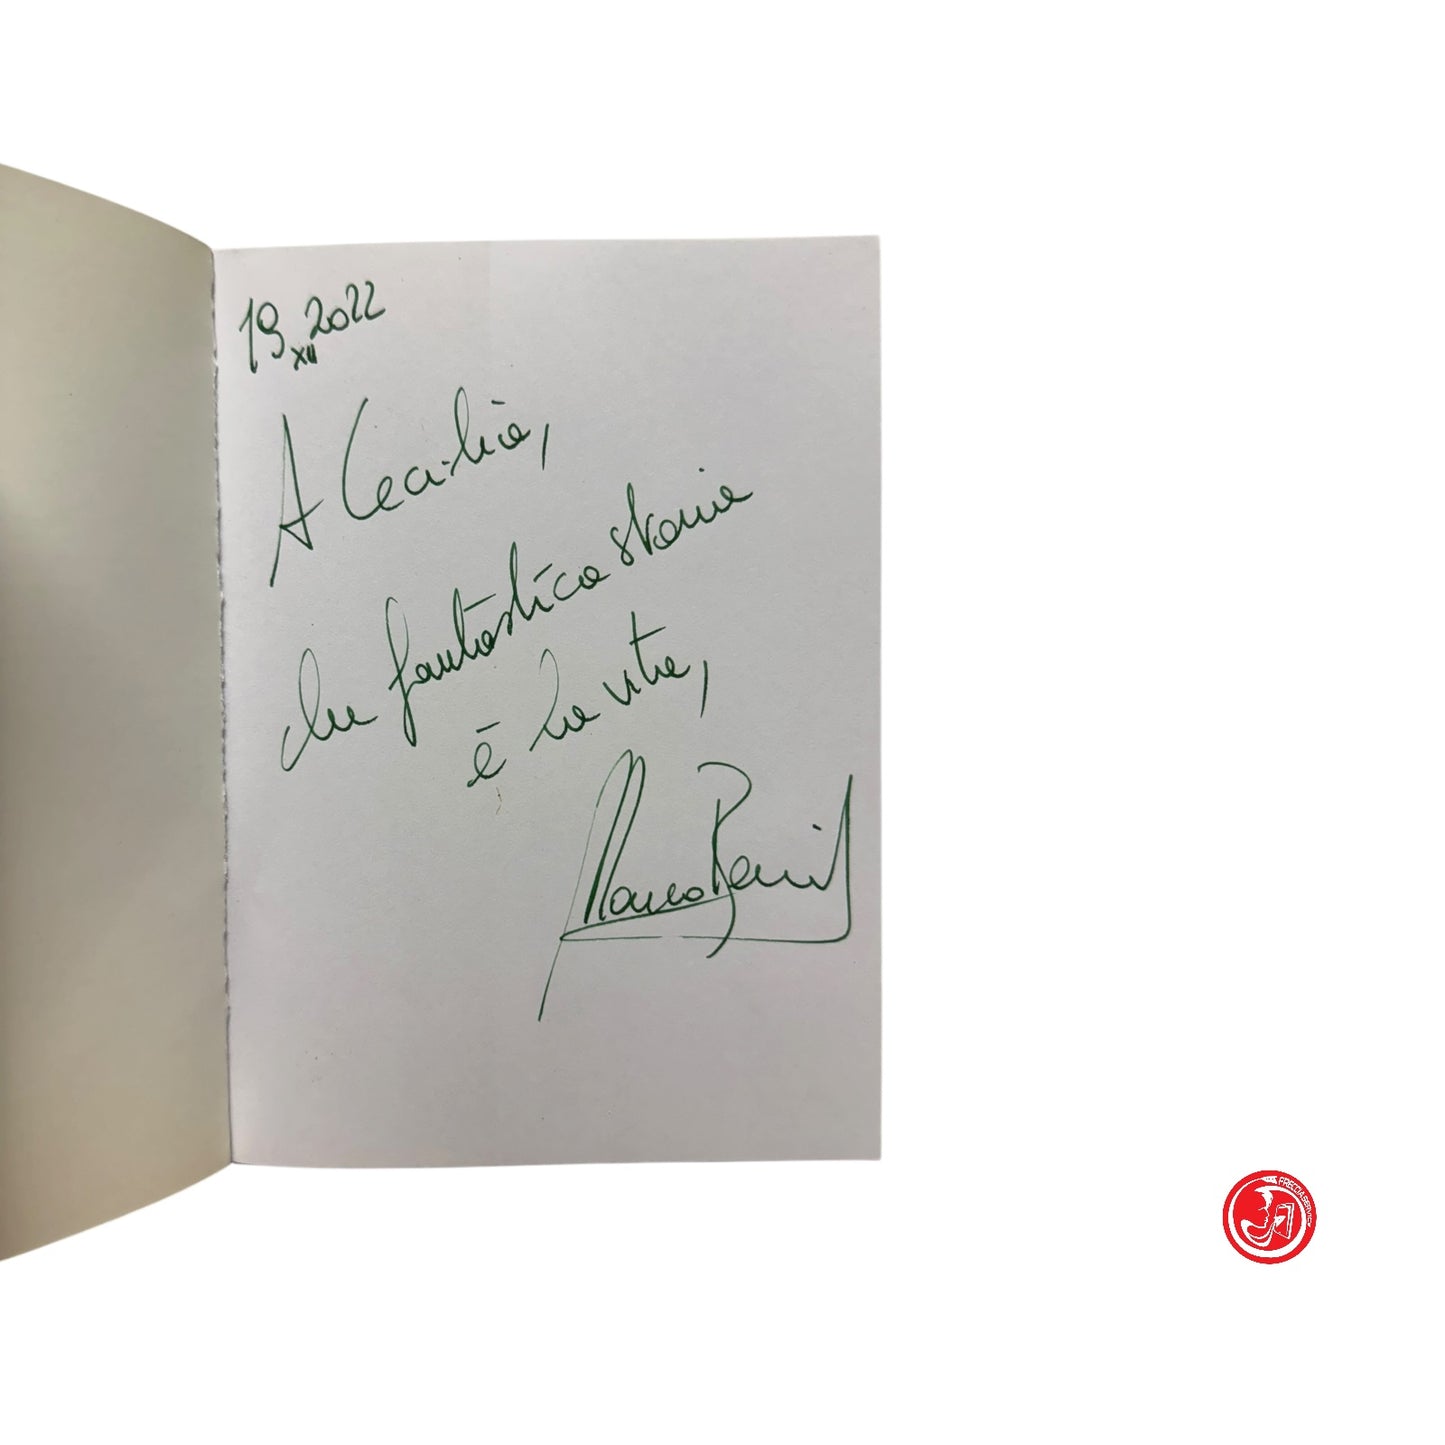 19 XII 2022
A Cecilia,
che fantastica storia
è la vita,
FRECCIASERVICE